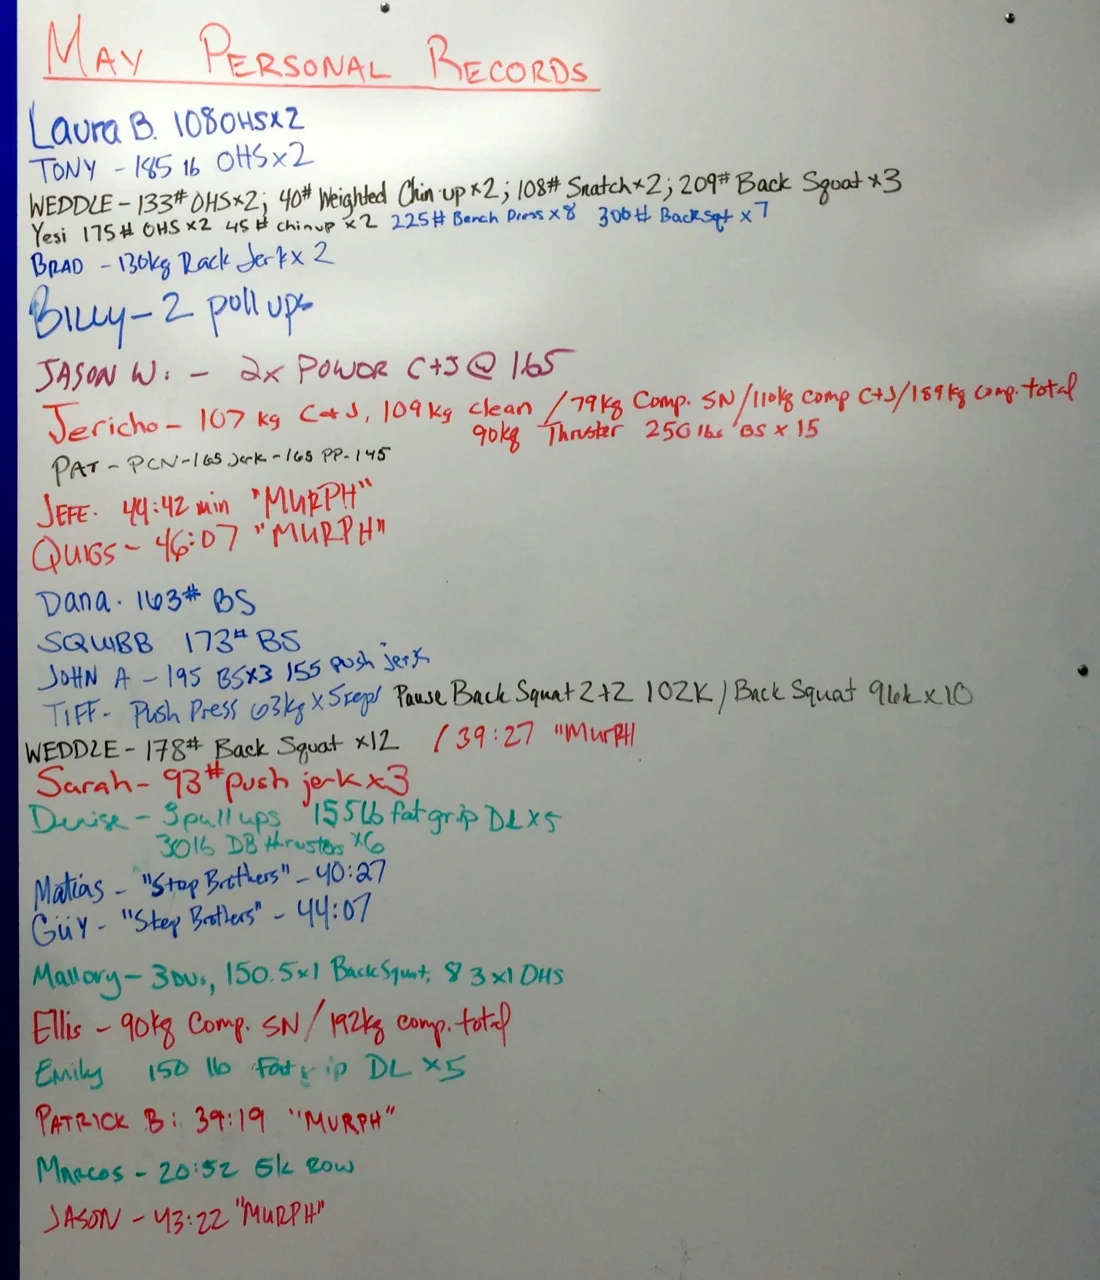 MAY PERSONAL RECORDS
Laura B. 108OHSX2
TONY - 185 lb OHSX2
WEDDLE - 133# OHS×2; 40# Weighted Chin-up×2; 108# Snatch×2; 209# Back Squat ×3
Yesi 175# OHS×2 45# chinup ×2 225# Bench Press×8 300# Backsqt ×7
BRAD - 130kg Rack Jerk x 2
BILLY - 2 pull ups
JASON W: - 2x POWER C+J @ 165
Jericho - 107 kg C+J, 109kg clean / 79kg Comp. SN / 110kg comp C+J / 189kg comp. total
90kg Thruster 250 lbs BS x 15
PAT - PCN-165 jerk-165 PP-145
JEFE. 44:42 min "MURPH"
QUIGS - 46:07 "MURPH"
Dana. 163# BS
SQUIBB 173# BS
JOHN A - 195 BSX3 155 push jerk
TIFF- Push Press 63kg X 5reps/ Pause Back Squat 2+2 102K / Back Squat 96k×10
WEDDLE - 178# Back Squat ×12 / 39:27 "MurPH
Sarah - 93# push jerk x3
Denise - 3pull ups 155lb fat grip DL X5
30lb DB thrusters X6
Matias - "Step Brothers" - 40:27
GüY - "Step Brothers" - 44:07
Mallory - 3DUs, 150.5×1 Back Squat, 83×1 OHS
Ellis - 90kg Comp. SN / 192kg comp. total
Emily 150 lb Fat grip DL ×5
PATRICK B: 39:19 "MURPH"
MARCOS - 20:52 5k ROW
JASON - 43:22 "MURPH"